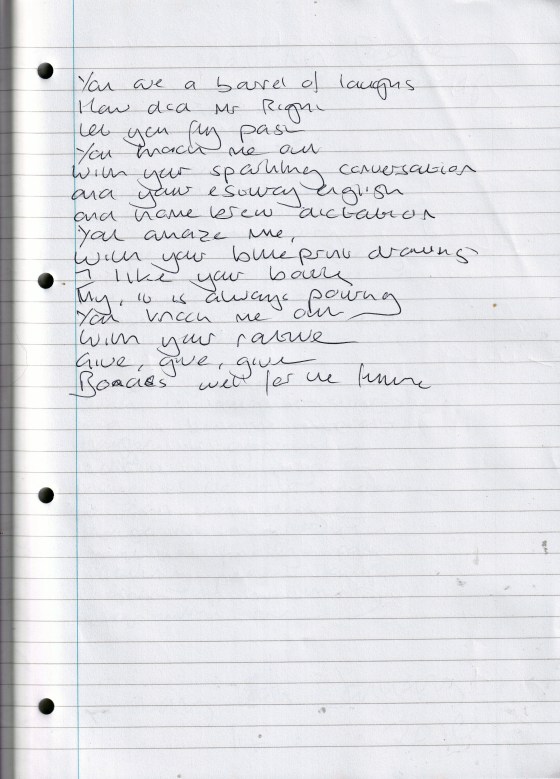 You are a barrel of laughs
How did Mr Right
Let you fly past
You knock me out
With your sparkling conversation
and your estuary english
and home brew dictation
You amaze me,
With your blueprint drawings
I like your
My, it is always pouring
You knock me out
With your
Give, give, give
Boades well for the future